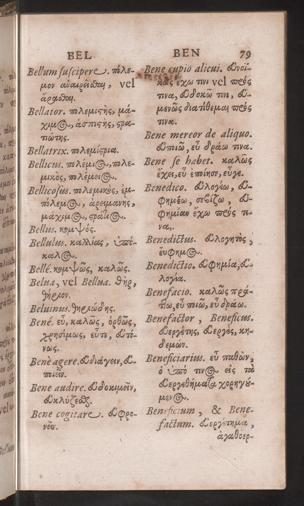 BEL
Bellum suscipere. πόλε-
μον ἀναιρεῖσθαι, vel
ἄρασθαι.
Bellator. πολεμιστὴς, μά-
χιμος, ἀσπιστὴς, στρα-
τιώτης.
Bellatrix. πολεμίστρια.
Bellicus. πολέμιος, πολε-
μικὸς,
Bellicosus. πολεμικὸς, ἐμ-
πόλεμος, ἀρειμανὴς,
μάχιμος,
Bellus. κομψός.
Bellulus. καλλίας, ὑπό-
καλος.
Bellé. κομψῶς, καλῶς.
Belua, vel Bellua. θὴρ,
θηρίον.
Beluinus. θηριώδης.
Bené. εὖ, καλῶς, ὀρθῶς,
χρησίμως,
Bene agere. εὐδιάγειν, εὐ-
Bene audire. εὐδοκιμεῖν,
Bene cogitare. εὐφρο-
νεῖν.
BEN 79
Bene cupio alicui. εὐνοϊ-
κῶς ἔχω τινι vel πρός
τινα, εὐδοκῶ τινι, εὐ-
μενῶς διατίθεμαι πρός
τινα.
Bene mereor de aliquo.
εὐποιῶ, εὖ δράω τινα.
Bene se habet. καλῶς
ἔχει, εὖ ἐποίησε, εὖγε.
Benedico. εὐλογέω, εὐ-
φημέω,
φημίαν ἔχω πρός τι-
να.
Benedictus. εὐλογητὸς,
εὔφημος.
Benedictio. εὐφημία, εὐ-
λογία.
Benefacio. καλῶς πράτ-
τω, εὖ ποιῶ, εὖ δράω.
Benefactor, Beneficus.
εὐεργέτης, εὐεργὸς, κη-
δεμών.
Beneficiarius. εὖ παθὼν,
ὁ ὑπό τινος εἰς τὸ
εὐεργέτημα χορηγού-
μενος.
Beneficium, & Bene-
factum. εὐεργέτημα,
ἀγαθοερ-